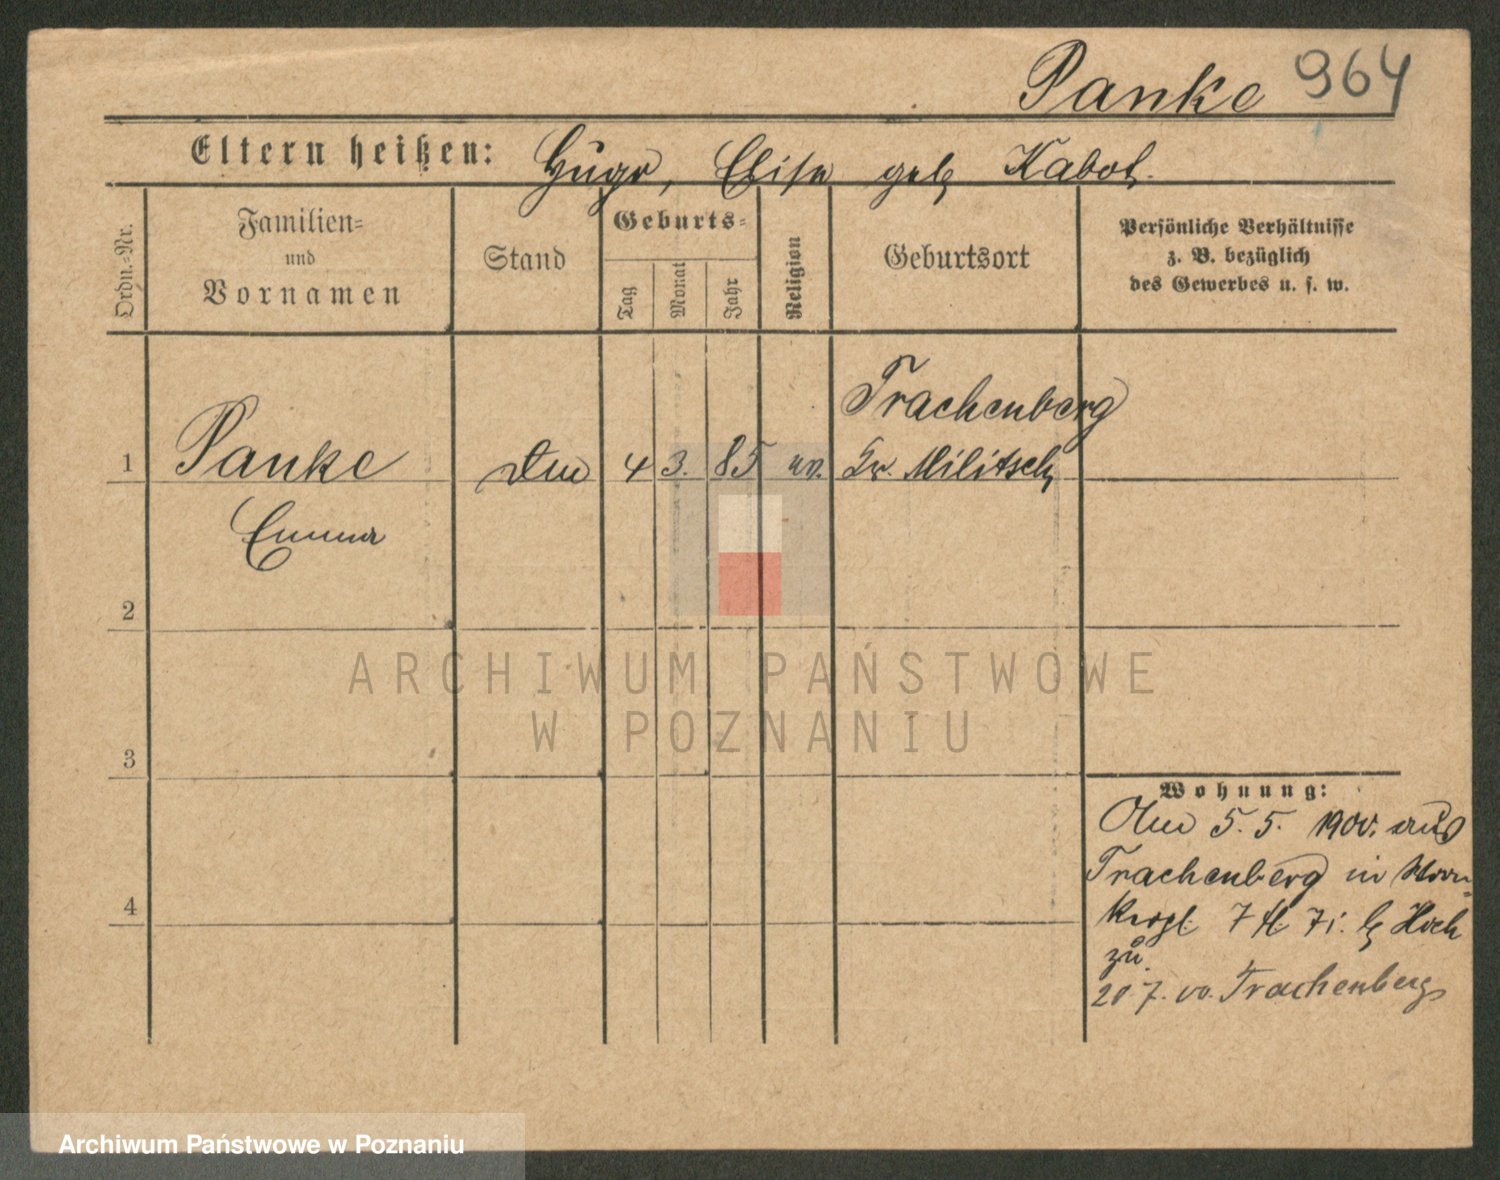 Panke 964
Eltern heißen: Hugo, Elise geb Kabot.
Ordn.-Nr.
Familien-
und
Vornamen
Stand
Geburts-
Tag
Monat
Jahr
Religion
Geburtsort
Persönliche Verhältnisse
z. B. bezüglich
des Gewerbes u. s. w.
Trachenberg
1 Panke 4 3. 85 ev. Kr. Militsch
Emma
2
3
4
Wohnung:
5. 5. 1900. aus
Trachenberg in
7 b Koch
zu.
20 7. 00. Trachenberg
ARCHIWUM PAŃSTWOWE
W POZNANIU
Archiwum Państwowe w Poznaniu